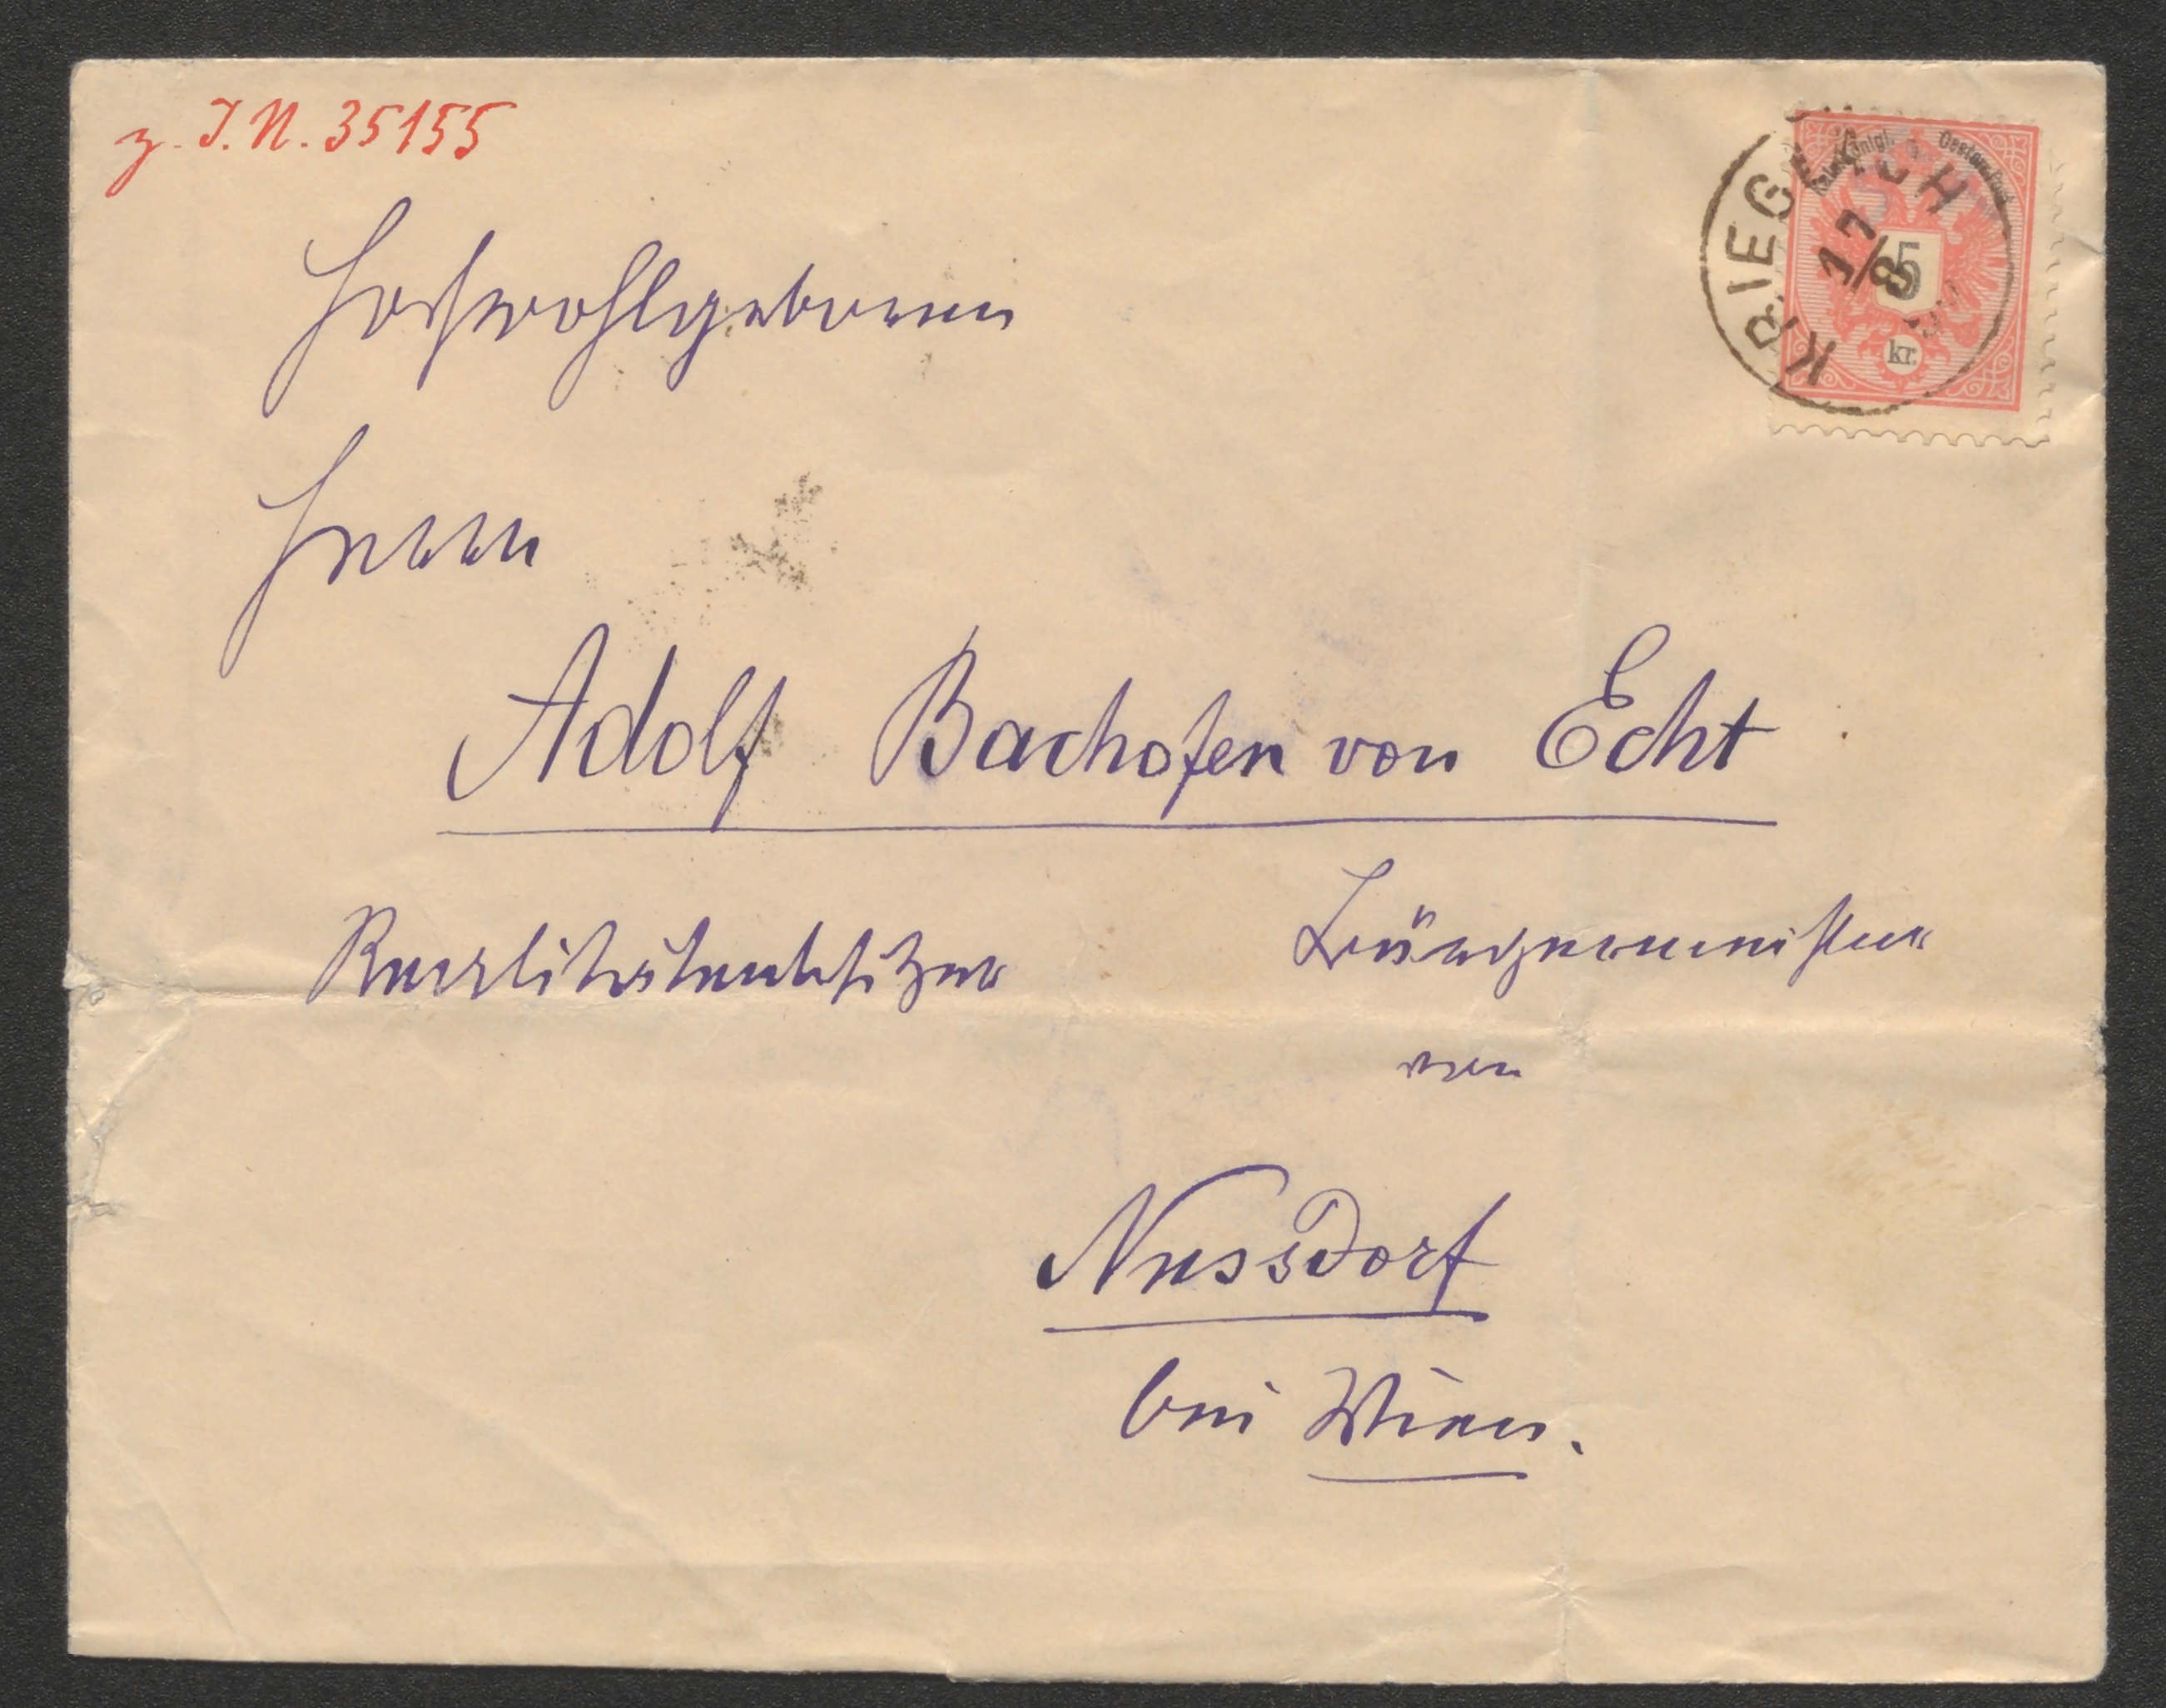 z. I. N. 35155
KRIEGLACH
17/8
5
kr.
Hochwohlgeboren
Herrn
Adolf Bachofen von Echt
Realitätenbesitzer Bürgermeister
von
Nussdorf
bei Wien.